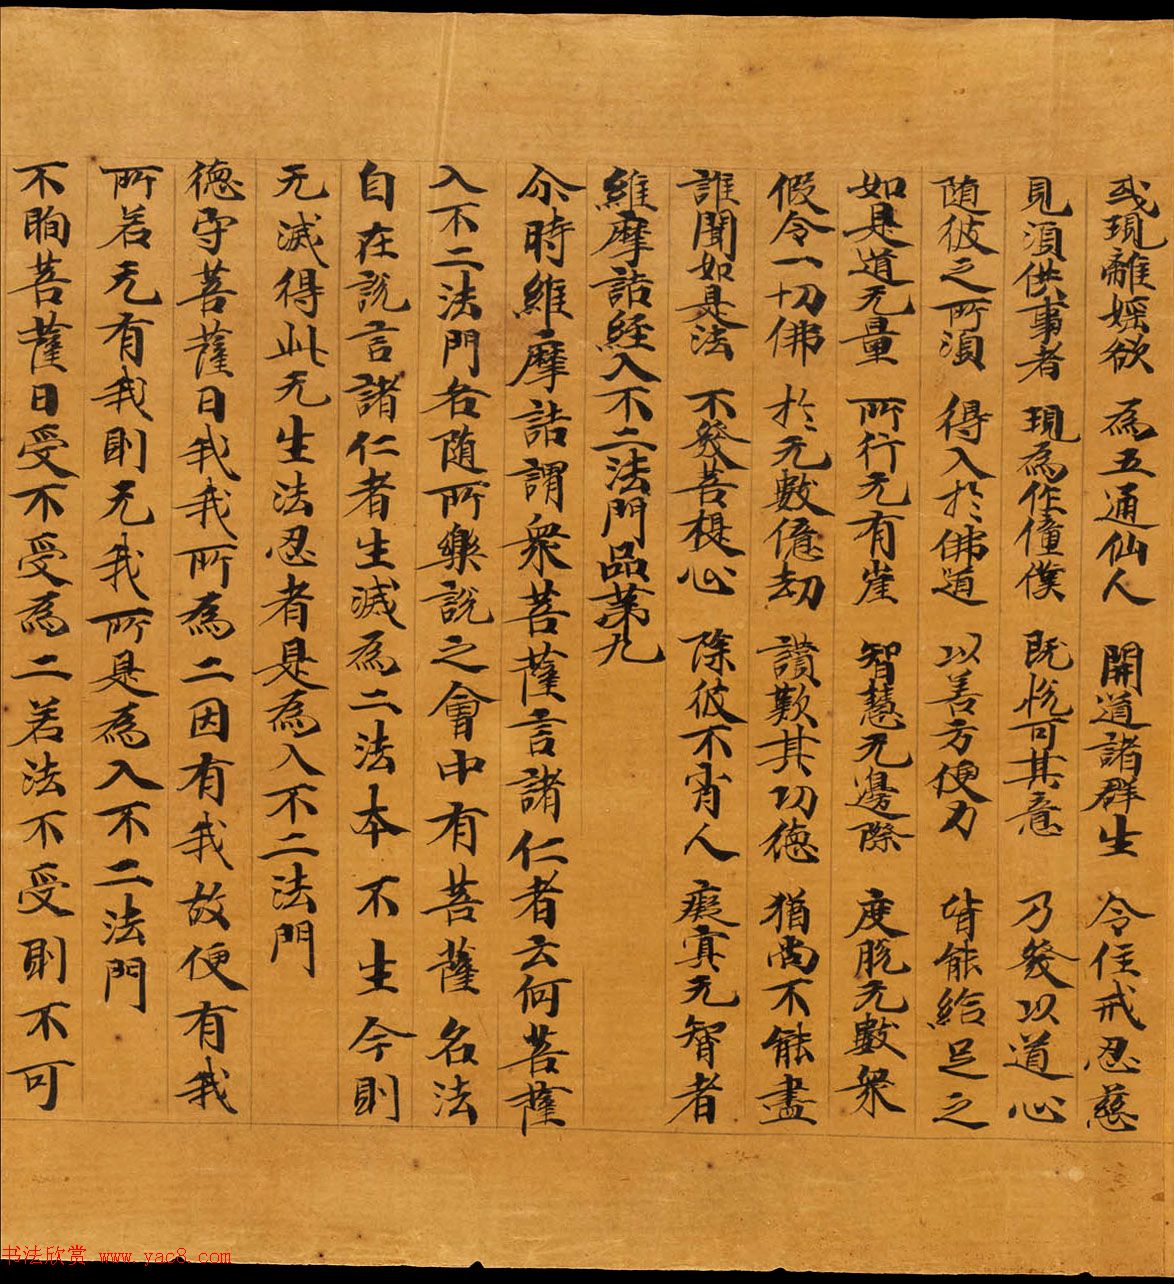 或現離婬欲 為五通仙人 開道諸群生 令住戒忍慈
見須供事者 現為作僮僕 既悅可其意 乃發以道心
随彼之所須 得入於佛道 以善方便力 皆能給足之
如是道无量 所行无有崖 智慧无邊際 度脫无數衆
假令一切佛 於无數億劫 讃歎其功徳 猶尚不能盡
誰聞如是法 不發菩提心 除彼不肖人 癡冥无智者
維摩詰經入不二法門品第九
尒時維摩詰謂衆菩薩言諸仁者云何菩薩
入不二法門各随所樂說之會中有菩薩名法
自在說言諸仁者生滅為二法本不生今則
无滅得此无生法忍者是為入不二法門
徳守菩薩曰我我所為二因有我故便有我
所若无有我則无我所是為入不二法門
不眴菩薩曰受不受為二若法不受則不可
书法欣赏 www.yac8.com